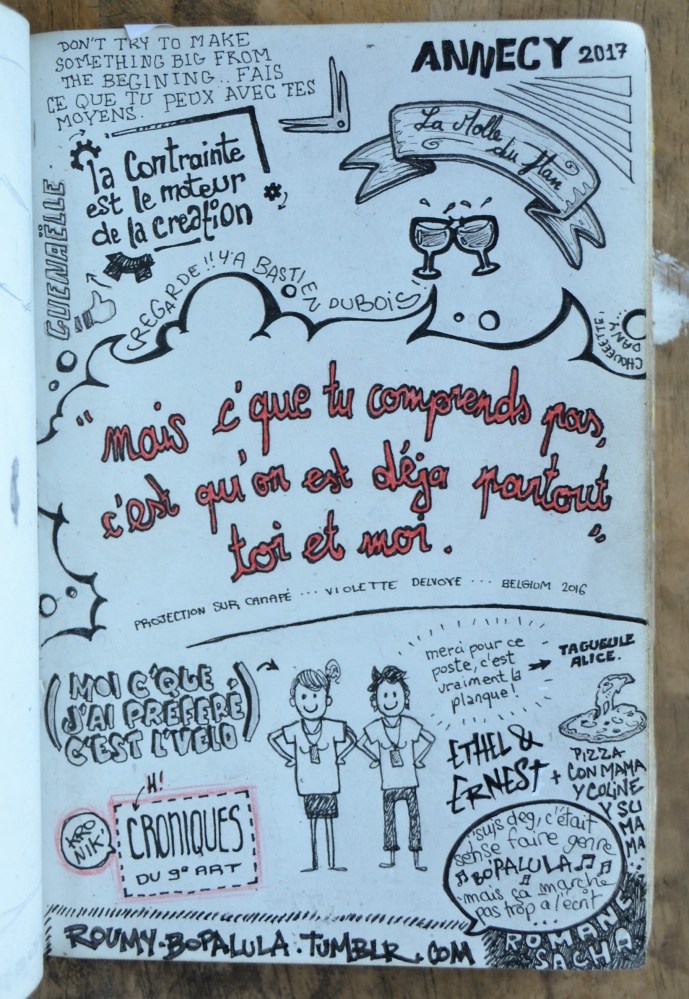 DON'T TRY TO MAKE
SOMETHING BIG FROM
THE BEGINING.. FAIS
CE QUE TU PEUX AVEC TES
MOYENS.
ANNECY 2017
La Molle
du Han
la contrainte
est le moteur
de la creation
GUENAËLLE
REGARDE!! Y'A BASTIEN DUBOIS
CHOUFFETTE
DANY..
"mais c'que tu comprends pas,
c'est qu'on est déja partout
toi et moi."
PROJECTION SUR CANAPÉ ... VIOLETTE DELVOYE ... BELGIUM 2016
(MOI C'QUE
J'AI PREFERÉ
C'EST L'VELO)
merci pour ce
poste, c'est
vraiment la
planque!
TAGUEULE
ALICE.
ETHEL &
ERNEST
PIZZA
+ CON MAMA
Y COLINE
Y SU
MA
MA
H!
KRO
NIK
CRONIQUES
DU 9e ART
'suis deg, c'était
sensé faire genre
♫ BOPALULA ♫♫
mais ça marche
pas trop à l'écrit
...
ROMANE
SACHA
ROUMY-BOPALULA.TUMBLR.COM